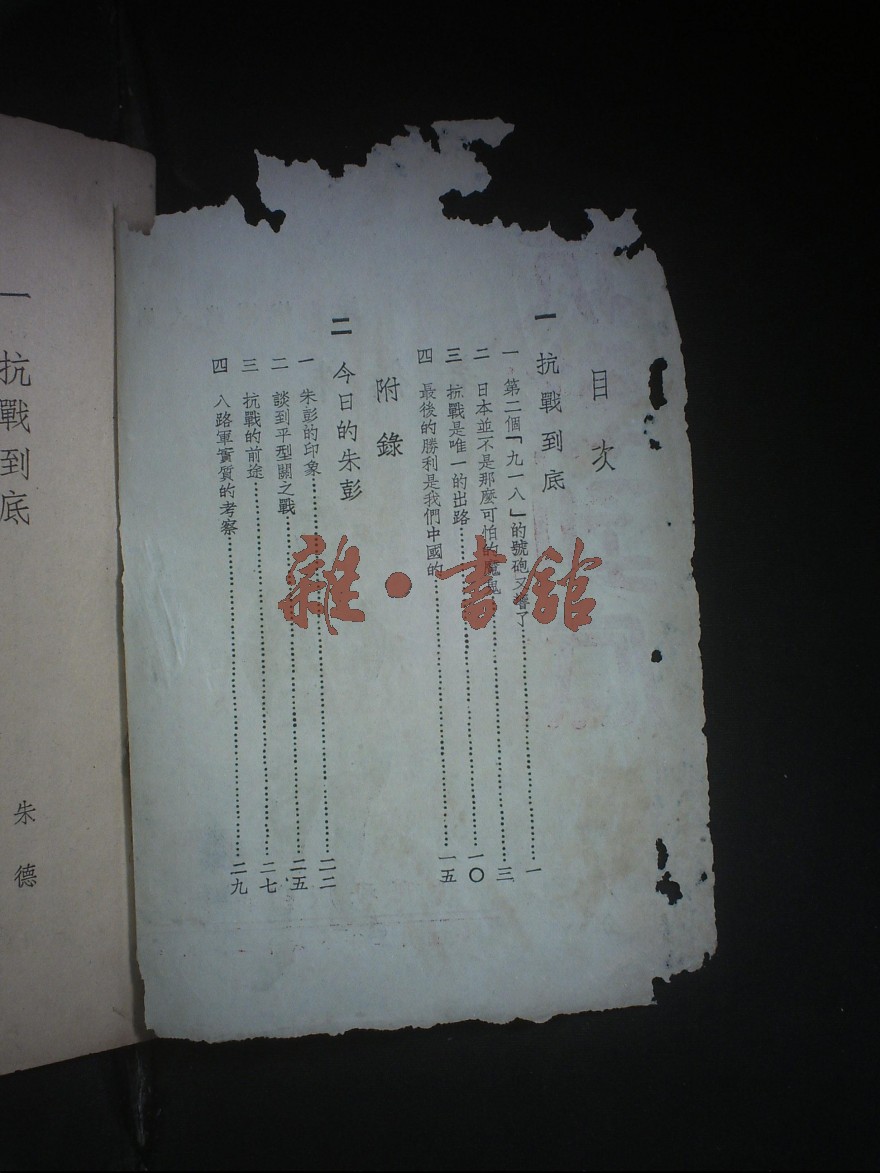 目次
一 抗戰到底
一 第二個「九一八」的號砲又響了……一
二 日本並不是那麼可怕的魔鬼……三
三 抗戰是唯一的出路……一〇
四 最後的勝利是我們中國的……一五
附錄
二 今日的朱彭
一 朱彭的印象……二二
二 談到平型關之戰……二五
三 抗戰的前途……二七
四 八路軍實質的考察……二九
一 抗戰到底
朱德
雜·書館